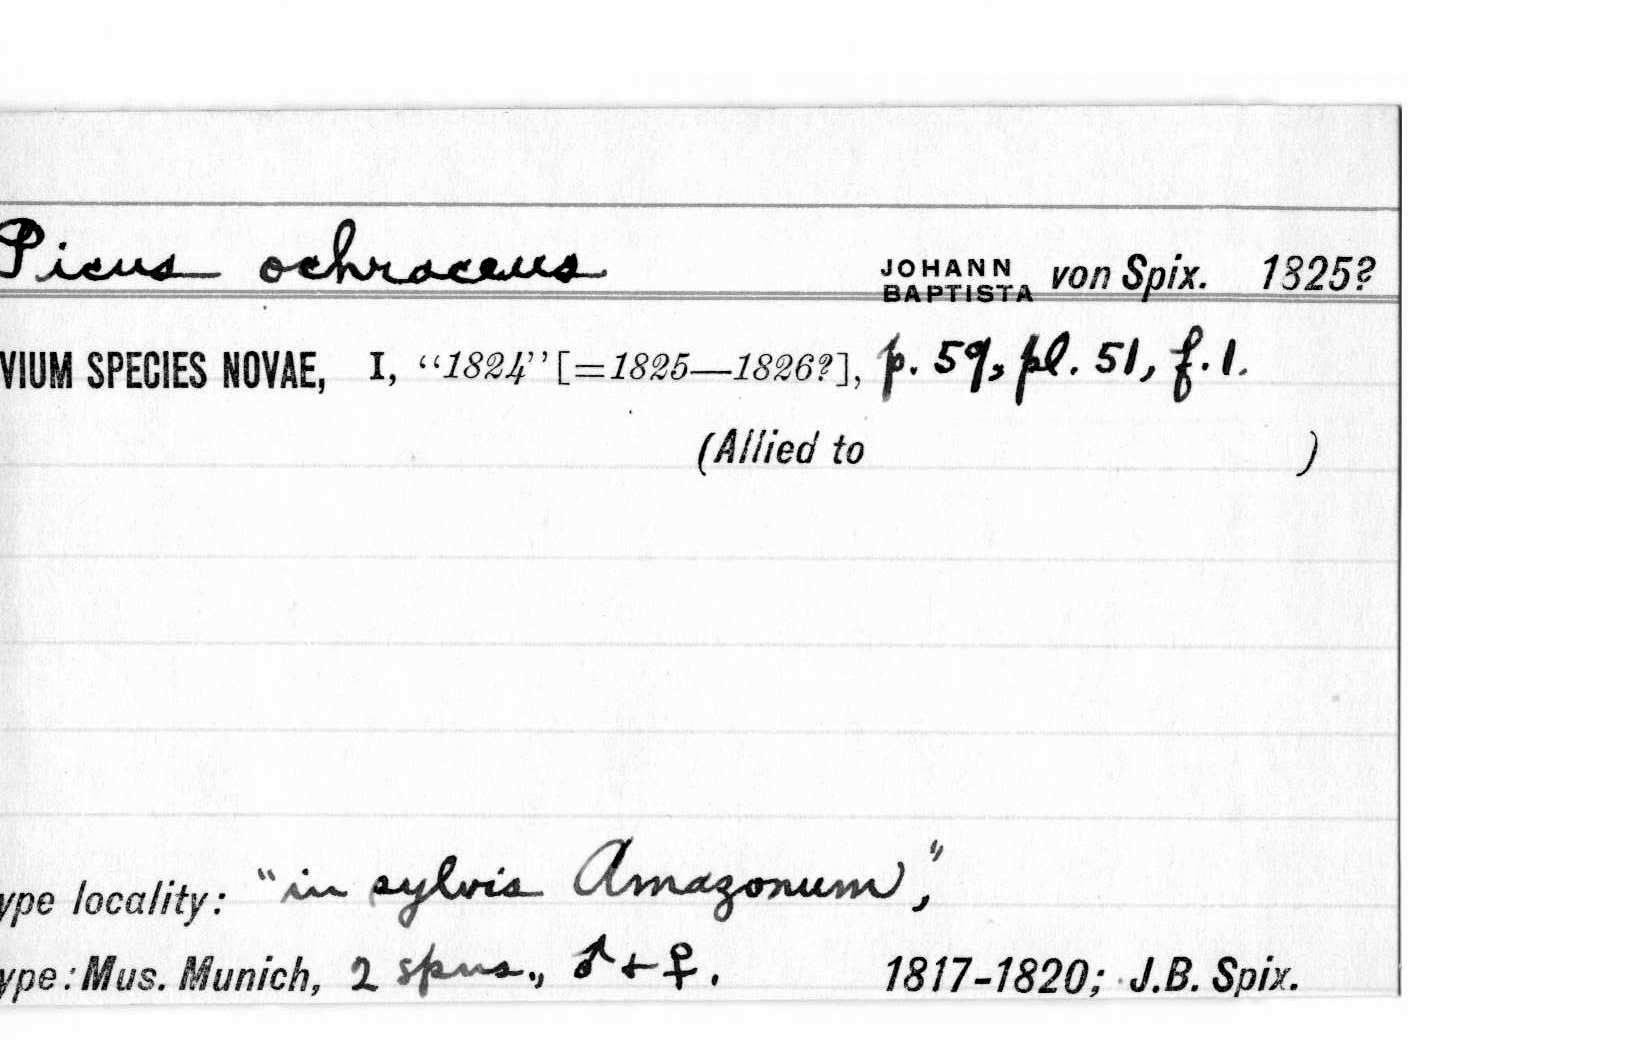 Picus ochraceus JOHANN BAPTISTA von Spix. 1825?
VIUM SPECIES NOVAE, I, "1824" [=1825—1826?], p. 59, pl. 51, f. 1.
(Allied to )
ype locality: "in sylvis Amazonum",
ype: Mus. Munich, 2 spns., ♂ + ♀. 1817-1820; J.B. Spix.